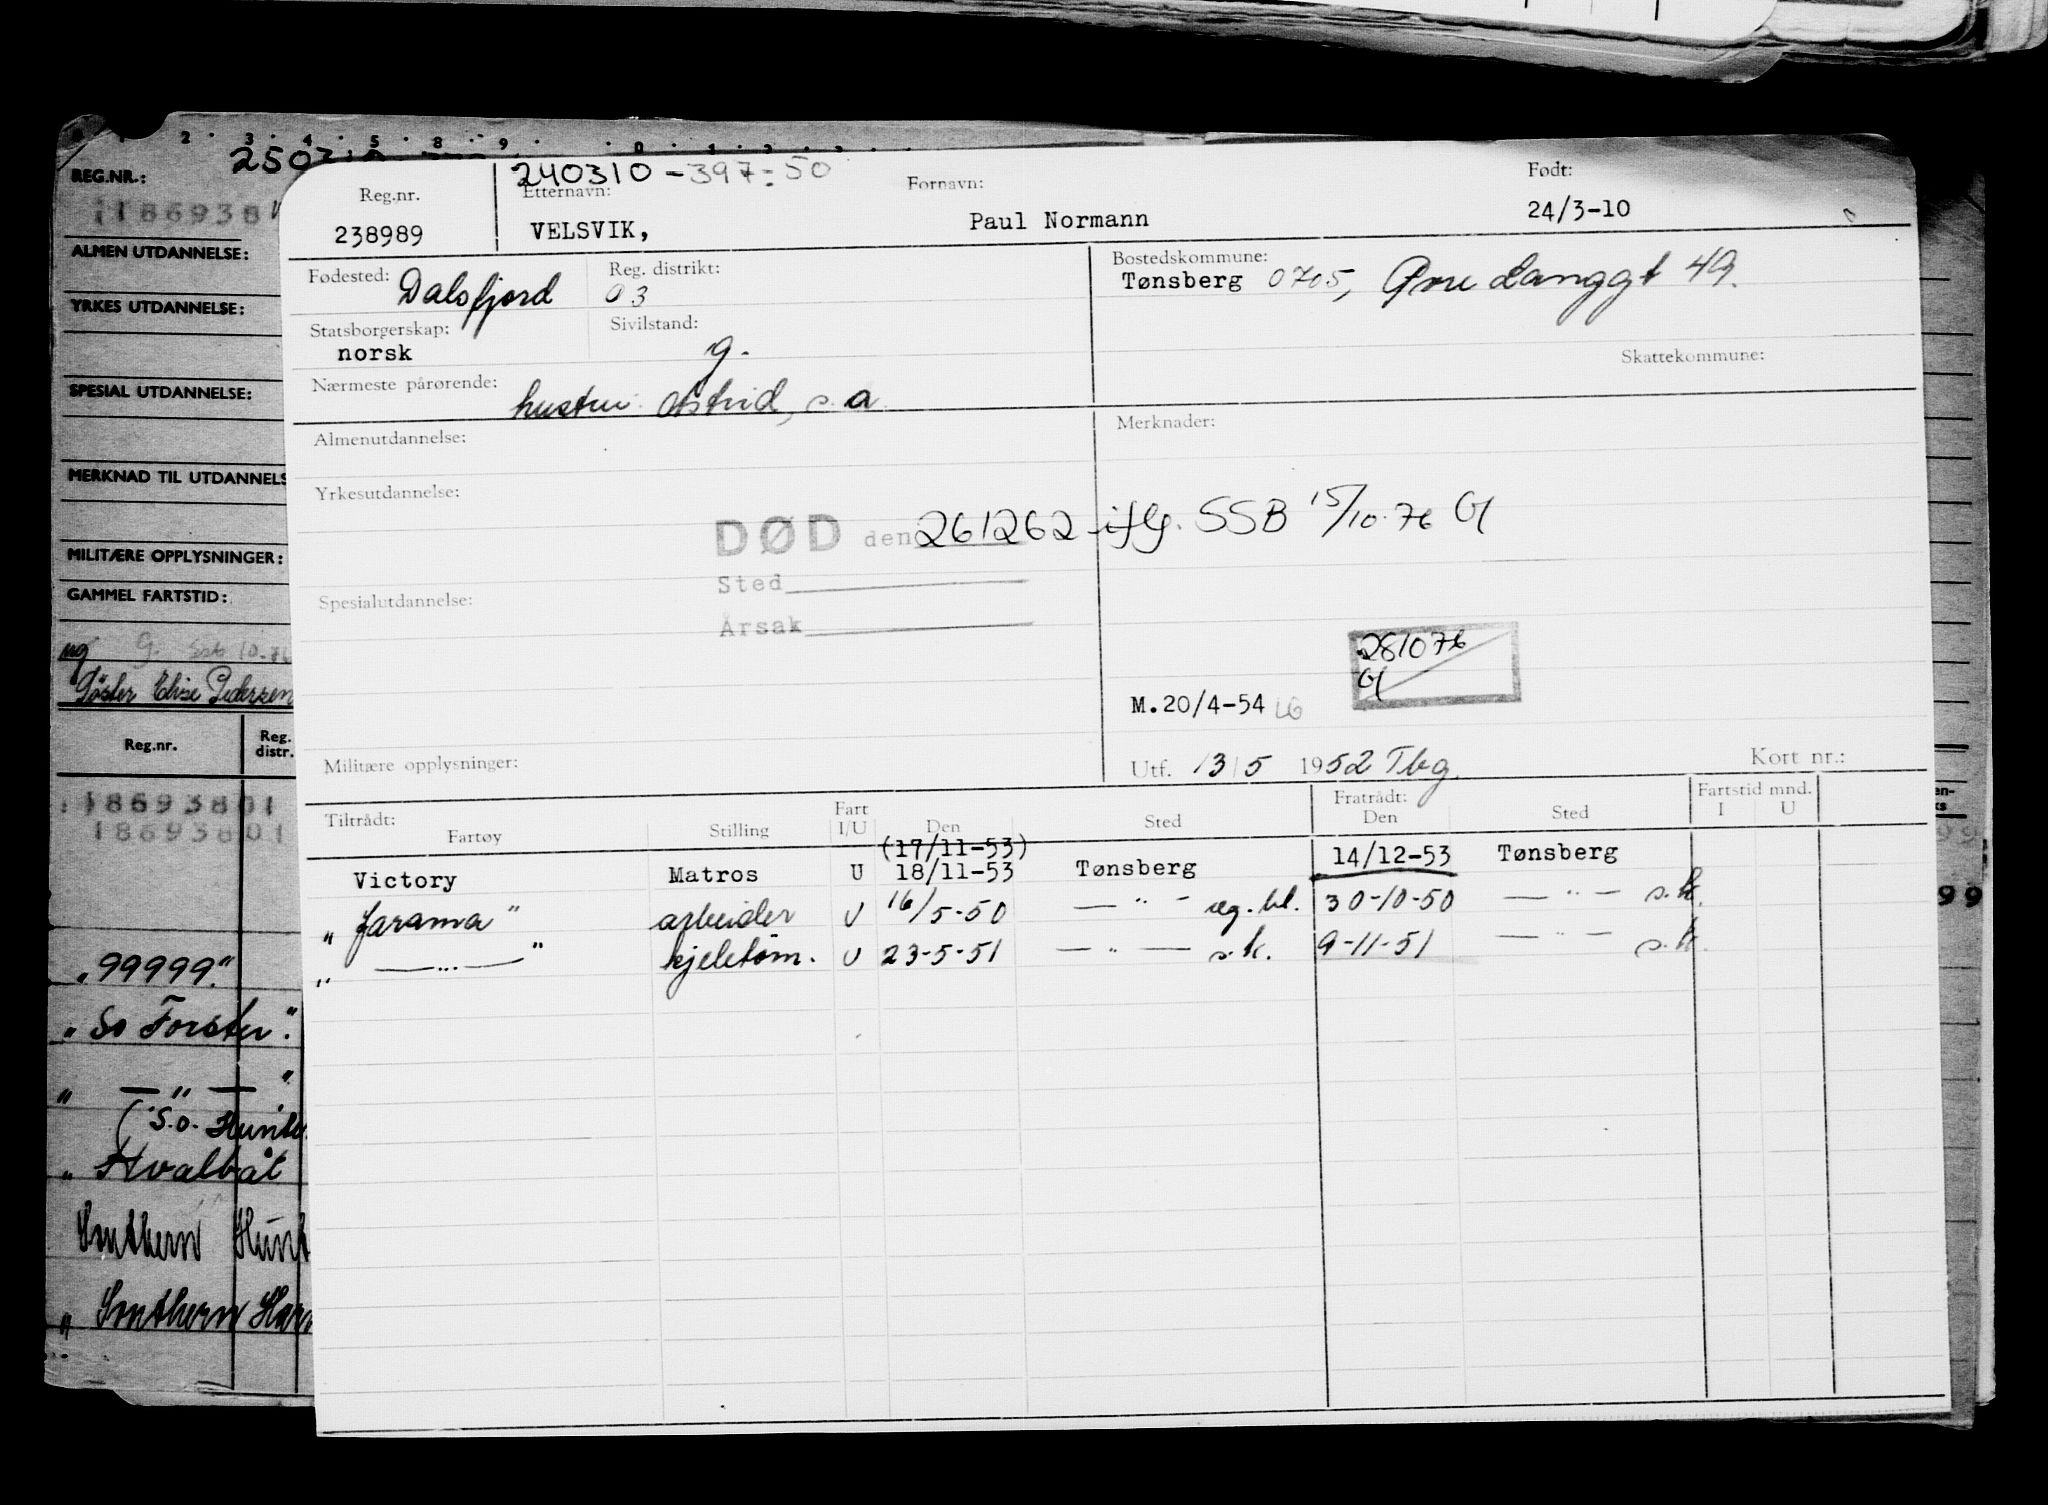 240310-397=50
Reg.nr. Etternavn: Fornavn: Født:
238989 VELSVIK, Paul Normann 24/3-10
Fødested: Dalsfjord Reg. distrikt: 03 Bostedskommune: Tønsberg 0705, Langgt 49.
Statsborgerskap: norsk Sivilstand: g. Skattekommune:
Nærmeste pårørende: hustru Astrid, s.a.
Almenutdannelse: Merknader:
Yrkesutdannelse:
DØD den 261262 iflg. SSB 15/10-76
Sted
Spesialutdannelse:
Årsak
281076
M.20/4-54
Militære opplysninger: Utf. 13/5 1952 Tbg. Kort nr.:
Tiltrådt: Fratrådt: Fartstid mnd.
Fartøy Stilling Fart I/U Den Sted Den Sted I U
Victory Matros U (17/11-53) 18/11-53 Tønsberg 14/12-53 Tønsberg
"Jarama" arbeider U 16/5-50 — " — reg.bl. 30-10-50 — " — s.k.
" — " — " kjeletøm. U 23-5-51 — " — s.k. 9-11-51 — " — s.k.
REG.NR.:
186938
ALMEN UTDANNELSE:
YRKES UTDANNELSE:
SPESIAL UTDANNELSE:
MERKNAD TIL UTDANNELS
MILITÆRE OPPLYSNINGER:
GAMMEL FARTSTID:
ug G. SSB 10-76
Søster Elise Pedersen
Reg.nr. Reg. distr.
18693801
18693801
"99999"
"So Forster".
" — " — "
(S.o. Hunter
" Hvalbåt
Southern Hunt
" Southern Har
99